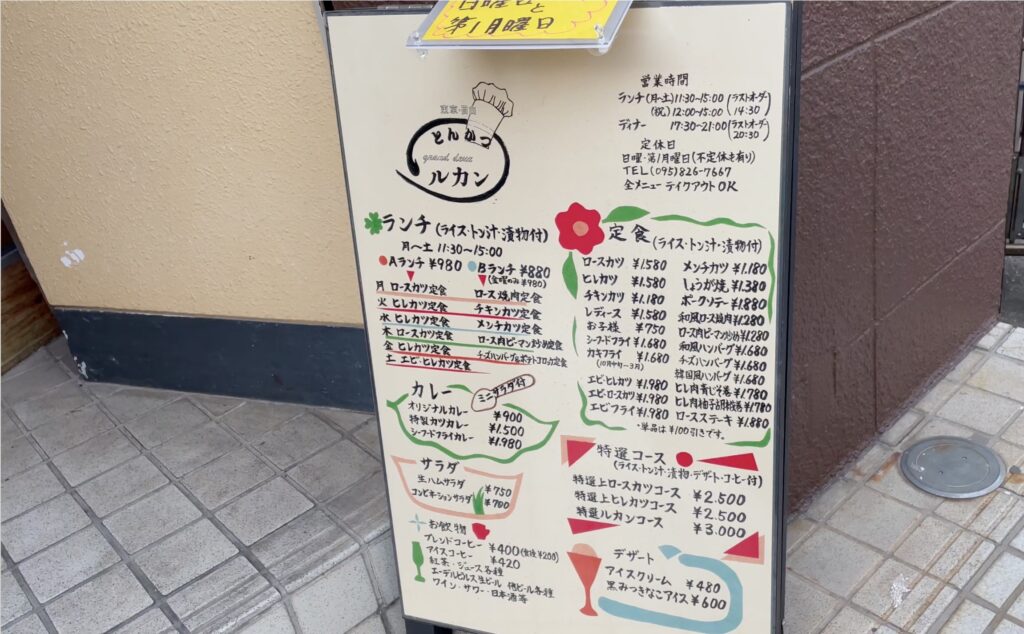 日曜日と
第1月曜日
とんかつ
ルカン
営業時間
ランチ(月〜土)11:30〜15:00(ラストオーダー 14:30)
(祝)12:00〜15:00
ディナー 17:30〜21:00(ラストオーダー 20:30)
定休日
日曜・第1月曜日(不定休も有り)
TEL(095)826-7667
全メニューテイクアウトOK
ランチ(ライス・トン汁・漬物付)
月〜土 11:30〜15:00
Aランチ ¥980 Bランチ ¥880
(金曜のみ¥980)
月 ロースカツ定食 ロース焼肉定食
火 ヒレカツ定食 チキンカツ定食
水 ヒレカツ定食 メンチカツ定食
木 ロースカツ定食 ロース肉ピーマン炒め定食
金 ヒレカツ定食 チーズハンバーグ&ポテトコロッケ定食
土 エビ・ヒレカツ定食
カレー ミニサラダ付
オリジナルカレー ¥900
特製カツカレー ¥1.500
シーフードフライカレー ¥1.980
サラダ
生ハムサラダ ¥750
コンビネーションサラダ ¥700
お飲物
ブレンドコーヒー ¥400(食後¥200)
アイスコーヒー ¥420
紅茶・ジュース各種
エーデルピルス生ビール 他ビール各種
ワイン・サワー・日本酒等
定食(ライス・トン汁・漬物付)
ロースカツ ¥1.580
ヒレカツ ¥1.580
チキンカツ ¥1.180
レディース ¥1.580
お子様 ¥750
シーフードフライ ¥1.680
カキフライ ¥1.680
(10月中旬〜3月)
エビ・ヒレカツ ¥1.980
エビ・ロースカツ ¥1.980
エビフライ ¥1.980
メンチカツ ¥1.180
しょうが焼 ¥1.380
ポークソテー ¥1.880
和風ロース焼肉 ¥1.280
ロース肉ピーマン炒め ¥1.280
和風ハンバーグ ¥1.680
チーズハンバーグ ¥1.680
韓国風ハンバーグ ¥1.680
ヒレ肉青じそ巻 ¥1.780
ヒレ肉柚子胡椒巻 ¥1.780
ロースステーキ ¥1.880
・単品は¥100引きです。
特選コース
(ライス・トン汁・漬物・デザート・コーヒー付)
特選上ロースカツコース ¥2.500
特選上ヒレカツコース ¥2.500
特選ルカンコース ¥3.000
デザート
アイスクリーム ¥480
黒みつきなこアイス ¥600